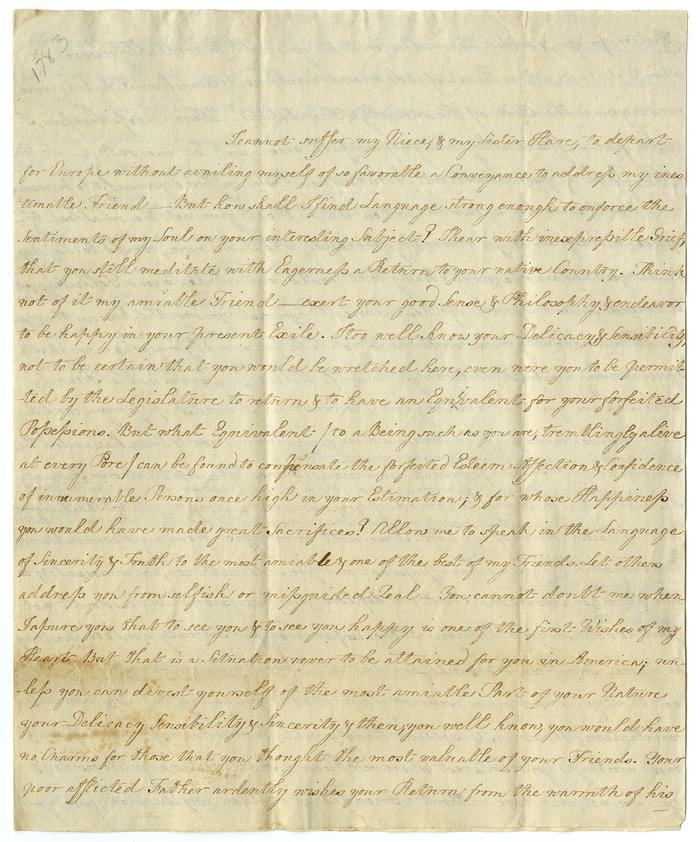 1783
I cannot suffer my Niece, & my Sister Hare, to depart
for Europe without availing myself of so favorable a Conveyance to address my ines-
-timable Friend — But how shall I find Language strong enough to enforce the
Sentiments of my Soul on your interesting Subject? I hear with inexpressible Grief,
that you still meditate with Eagerness a Return to your native Country. Think
not of it my amiable Friend — exert your good Sense & Philosophy & endeavor
to be happy in your present Exile. I too well know your Delicacy & Sensibility,
not to be certain that you would be wretched here, even were you to be permit-
-ted by the Legislature to return & to have an Equivalent for your forfeited
Possessions. But what Equivalent / to a Being such as you are, tremblingly alive
at every Pore / can be found to compensate the forfeited Esteem Affection & Confidence
of innumerable Persons once high in your Estimation; & for whose Happiness
you would have made great Sacrifices? Allow me to speak in the Language
of Sincerity & Truth to the most amiable & one of the best of my Friends. Let others
address you from selfish or missguided Zeal — You cannot doubt me when
I assure you that to see you & to see you happy is one of the first Wishes of my
Heart. But that is a Situation never to be attained for you in America; un-
-less you can divest yourself of the most amiable Part of your Nature
your Delicacy Sensibility & Sincerity & then, you well know, you would have
no Charms for those that you thought the most valuable of your Friends. Your
poor afflicted Father ardently wishes your Return from the warmth of his